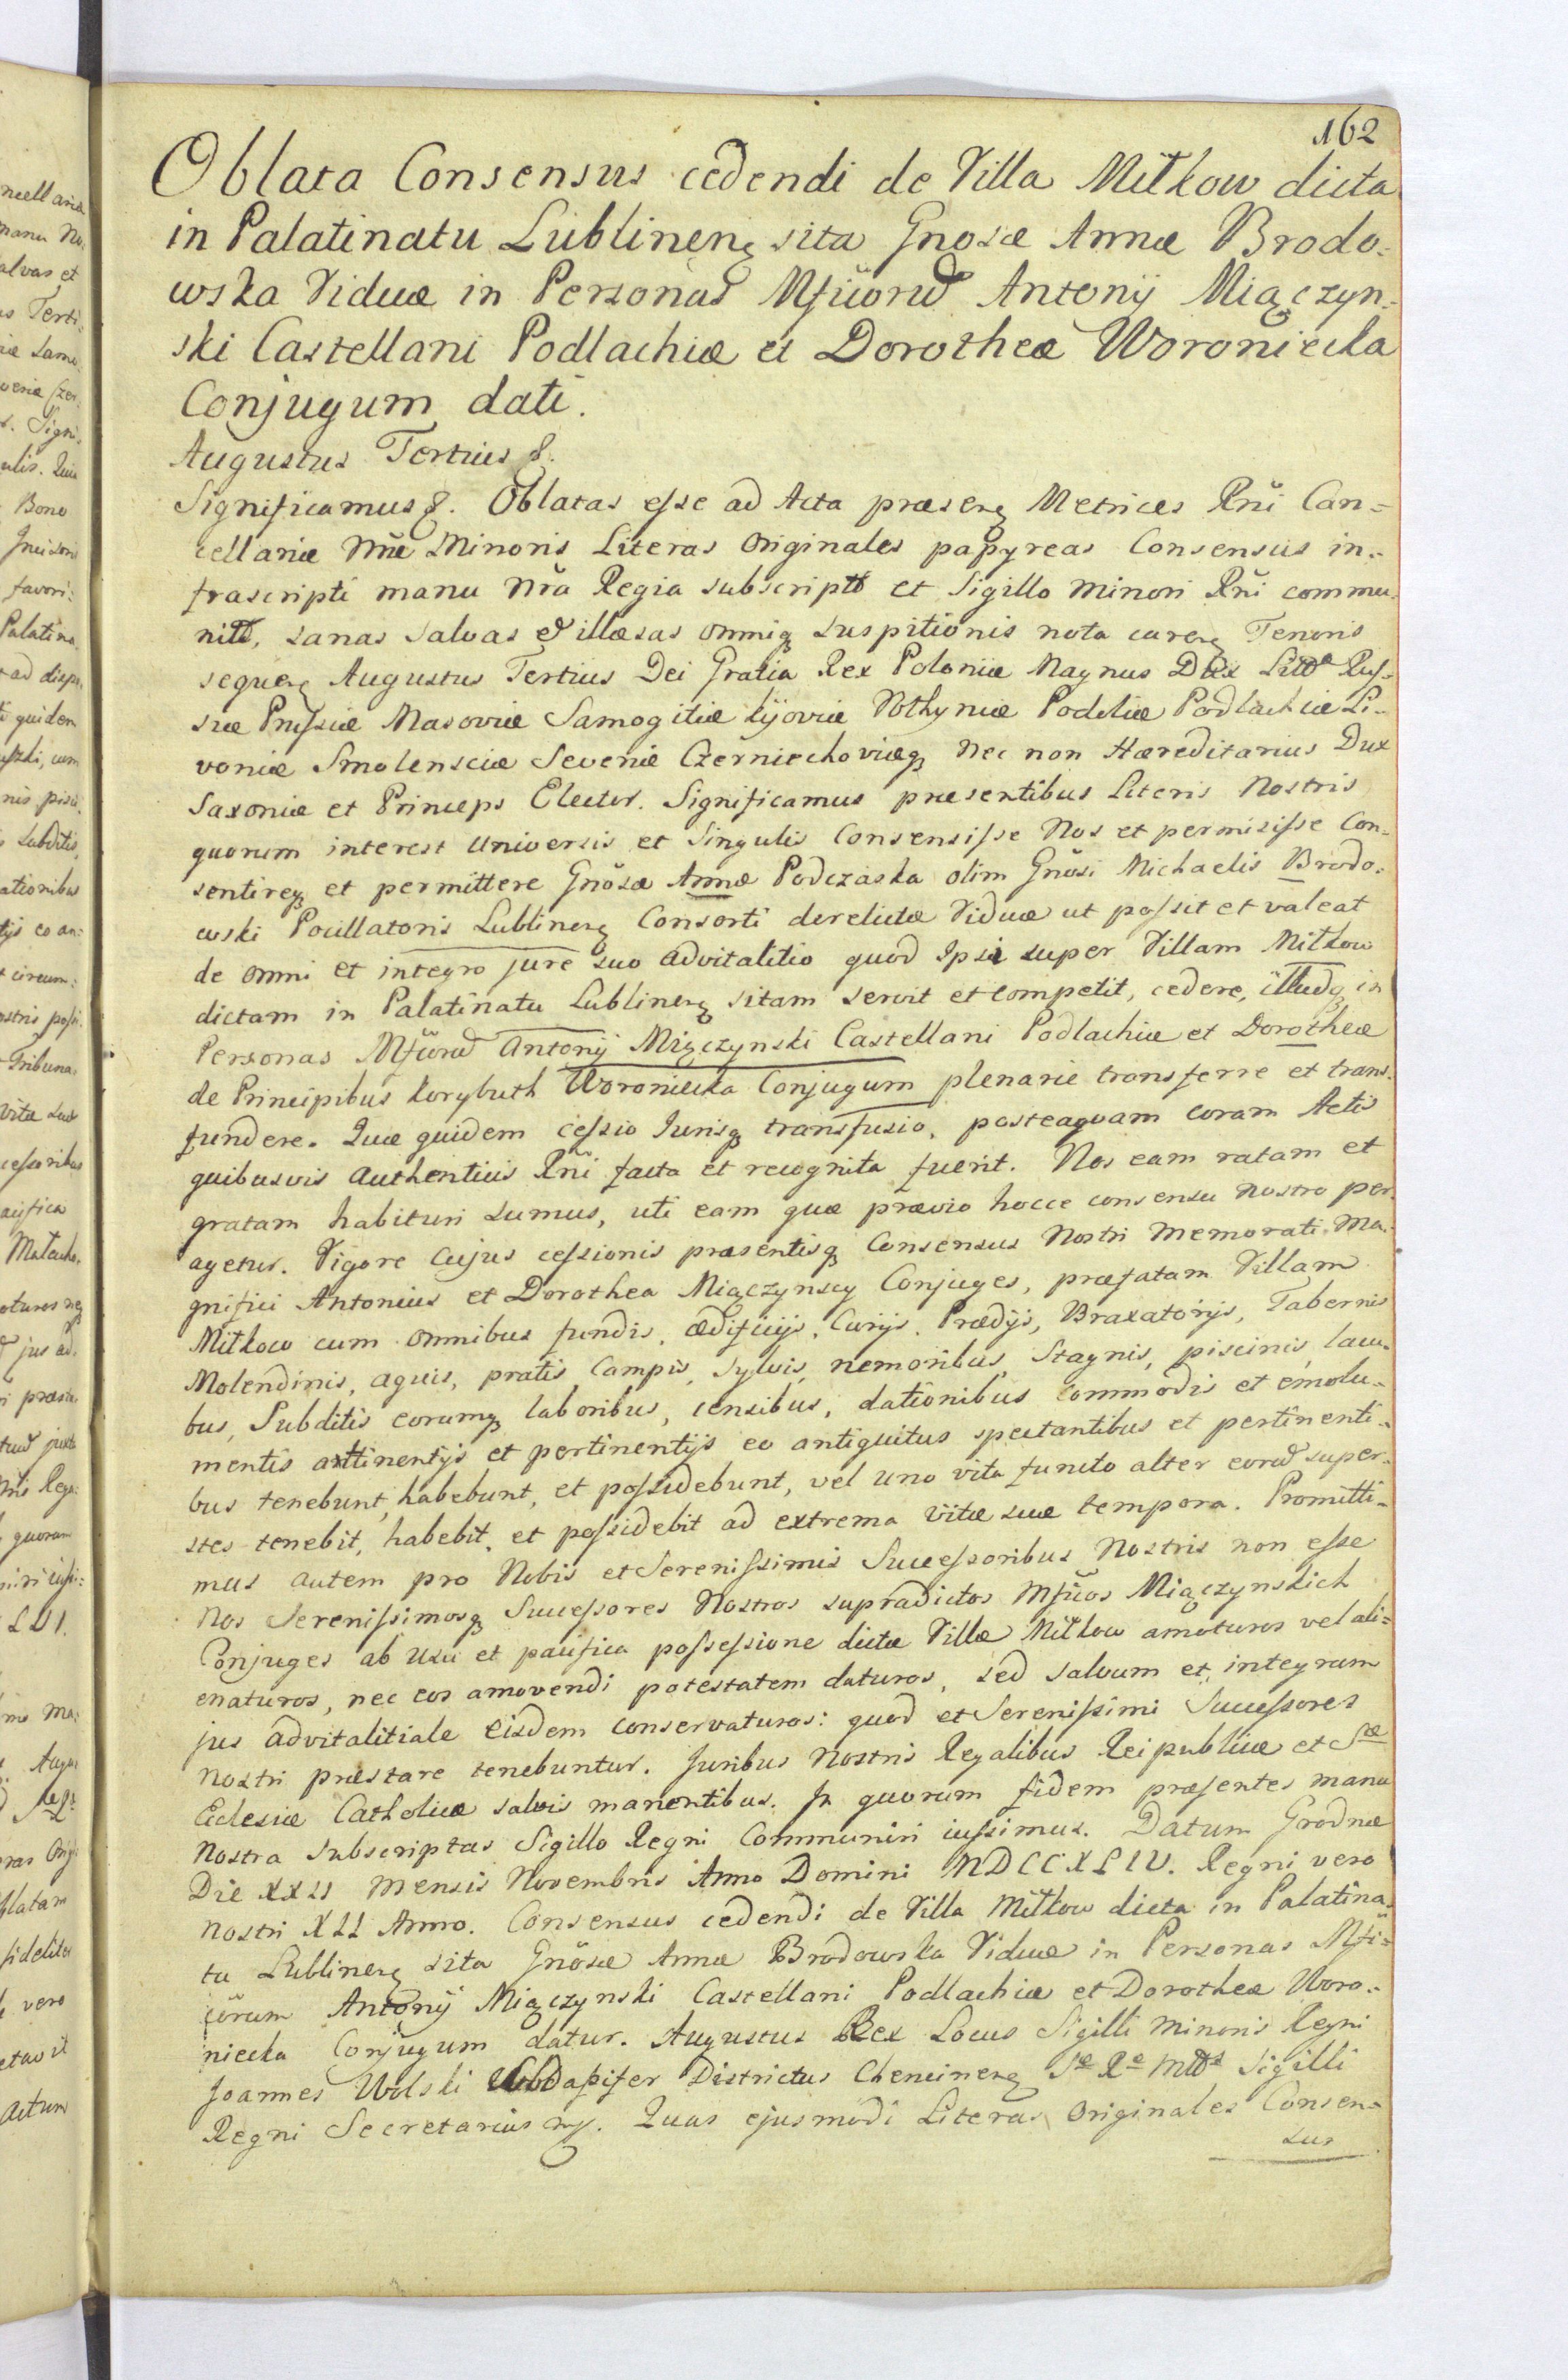 162
Oblata Consensus cedendi de Villa Mitkow dicta
in Palatinatu Lublinenę sita Gnosæ Annæ Brodo-
wska Viduæ in Personas Mficorū Antonij Miączyn-
ski Castellani Podlachiæ et Dorotheæ Woroniecka
Conjugum dati.
Augustus Tertius &.
Significamus &. Oblatas esse ad Acta præsenę Metrices Rñi Can-
cellariæ Nræ Minoris Literas Originales papyreas Consensus in-
frascripti manu Nrã Regia subscriptt et Sigillo Minori Rñi commu-
nitt, sanas salvas et illæsas omniq suspitionis nota carenę Tenoris
sequenę Augustus Tertius Dei Gratia Rex Poloniæ Magnus Dux Littæ Rus-
siæ Prussiæ Masoviæ Samogitiæ Kijoviæ Volhyniæ Podoliæ Podlachiæ Li-
voniæ Smolensciæ Severiæ Czerniechoviæq Nec non Hæreditarius Dux
Saxoniæ et Princeps Elector. Significamus præsentibus Literis Nostris
quorum interest Universis et Singulis Consensisse Nos et permisisse Con-
sentireq et permittere Gnõsæ Annæ Podczaska olim Gnõsi Michaelis Brodo-
wski Pocillatoris Lublinenę Consorti derelictæ Viduæ ut possit et valeat
de omni et integro jure suo advitalitio quod Ipsi super Villam Mitkow
dictam in Palatinatu Lublinenę sitam servit et competit, cedere, illudq in
Personas Mficorū Antonij Miączynski Castellani Podlachiæ et Dorotheæ
de Principibus Korybuth Woroniecka Conjugum plenarie transferre et trans-
fundere. Quæ quidem cessio Jurisq transfusio, posteaquam coram Actis
quibusvis Authenticis Rñi facta et recognita fuerit. Nos eam ratam et
gratam habituri sumus, uti eam quæ prævio hocce consensu Nostro per-
agetur. Vigore cujus cessionis præsentisq Consensus Nostri Memorati Ma-
gnifici Antonius et Dorothea Miączynscy Conjuges, præfatam Villam
Mitkow cum omnibus fundis, ædificijs, Curijs, Prædijs, Braxatorijs, Tabernis
Molendinis, aquis, pratis, Campis, Sylvis, nemoribus, Stagnis, piscinis, lacu-
bus, Subditis eorumq laboribus, censibus, dationibus commodis et emolu-
mentis attinentijs et pertinentijs eo antiquitus spectantibus et pertinenti-
bus tenebunt, habebunt, et possidebunt, vel uno vita functo alter eorū super-
stes tenebit, habebit, et possidebit ad extrema vitæ suæ tempora. Promitti-
mus autem pro Nobis et Serenissimis Successoribus Nostris non esse
Nos Serenissimosq Successores Nostros supradictos Mficos Miączynskich
Conjuges ab usu et pacifica possessione dictæ Villæ Mitkow amoturos vel ali-
enaturos, nec eos amovendi potestatem daturos, sed salvum et integrum
jus advitalitiale eisdem conservaturos: quod et Serenissimi Successores
Nostri præstare tenebuntur. Juribus Nostris Regalibus Reipublicæ et Sæ
Eclesiæ Catholicæ salvis manentibus. In quorum fidem præsentes manu
Nostra subscriptas Sigillo Regni Communiri iussimus. Datum Grodnæ
Die XXII Mensis Novembris Anno Domini MDCCXLIV. Regni vero
Nostri XII Anno. Consensus cedendi de Villa Mitkow dicta in Palatina-
tu Lublinenę sita Gnõsæ Annæ Brodowska Viduæ in Personas Mfi-
cõrum Antonij Miączynski Castellani Podlachiæ et Dorotheæ Woro-
niecka Conjugum datur. Augustus Rex Locus Sigilli Minoris Regni
Joannes Wolski Subdapifer Districtus Chencinenę Sæ Ræ Mttis Sigilli
Regni Secretarius mp. Quas ejusmodi Literas Originales Consen-
sus